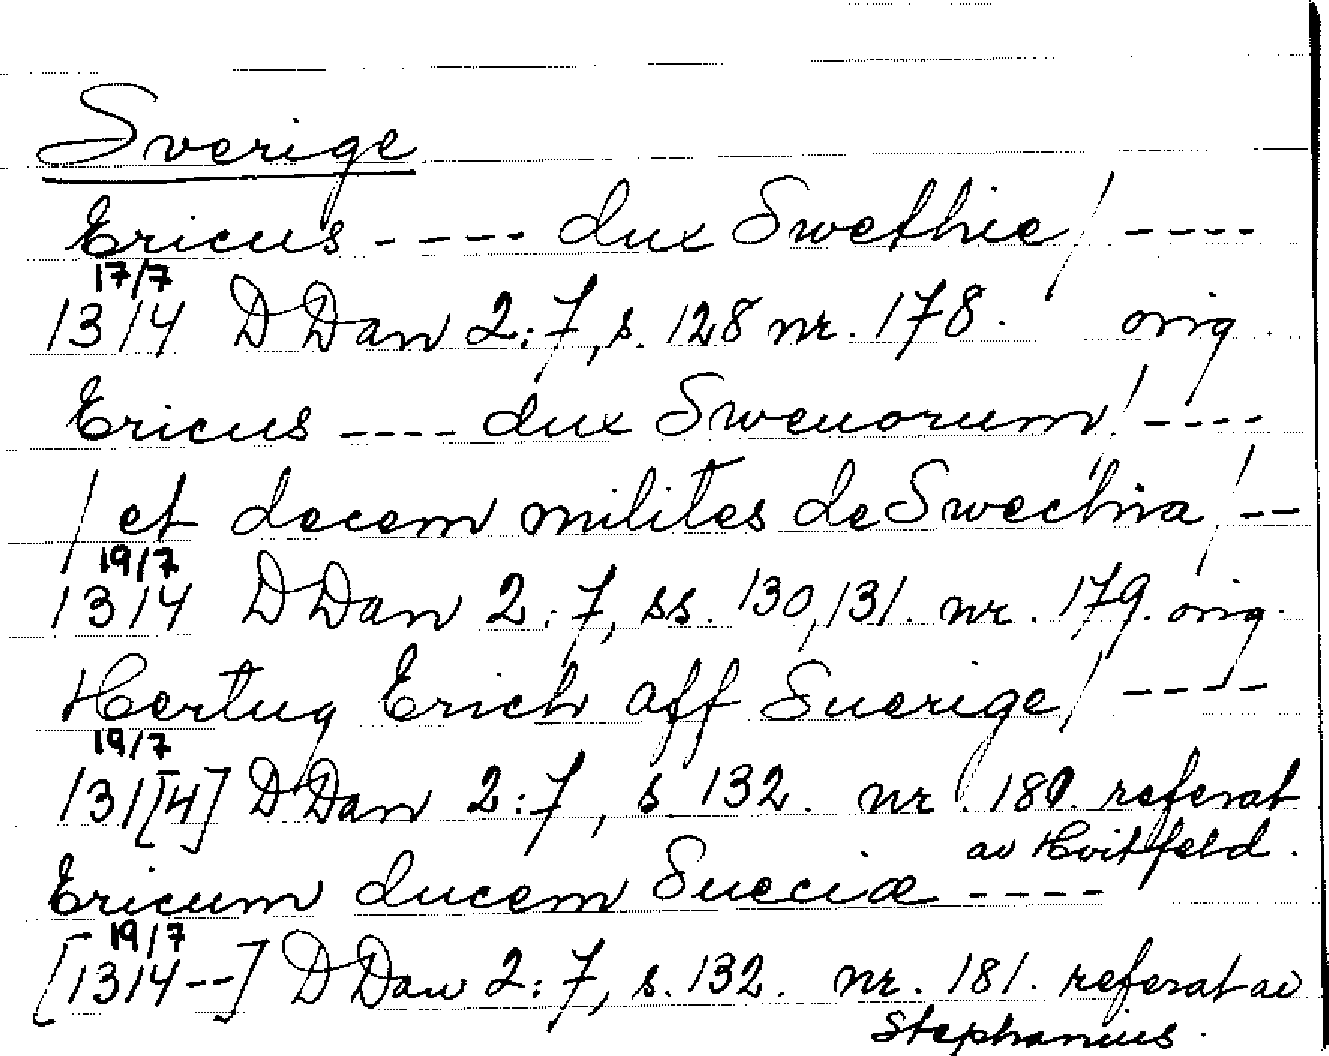 Sverige
Ericus ---- dux Swethie / ----
17/7
1314 DDan 2:7, s. 128 nr. 178. orig.
Ericus ---- dux Sweuorum / ----
/ et decem milites de Swechia / --
19/7
1314 DDan 2:7, ss. 130,131. nr. 179. orig.
Hertug Erich aff Suerige / ----
19/7
131[4] DDan 2:7, s 132. nr. 180. referat
av Hvitfeld.
Ericum ducem Sueciæ ----
19/7
[1314--] DDan 2:7, s. 132. nr. 181. referat av
Stephanius.